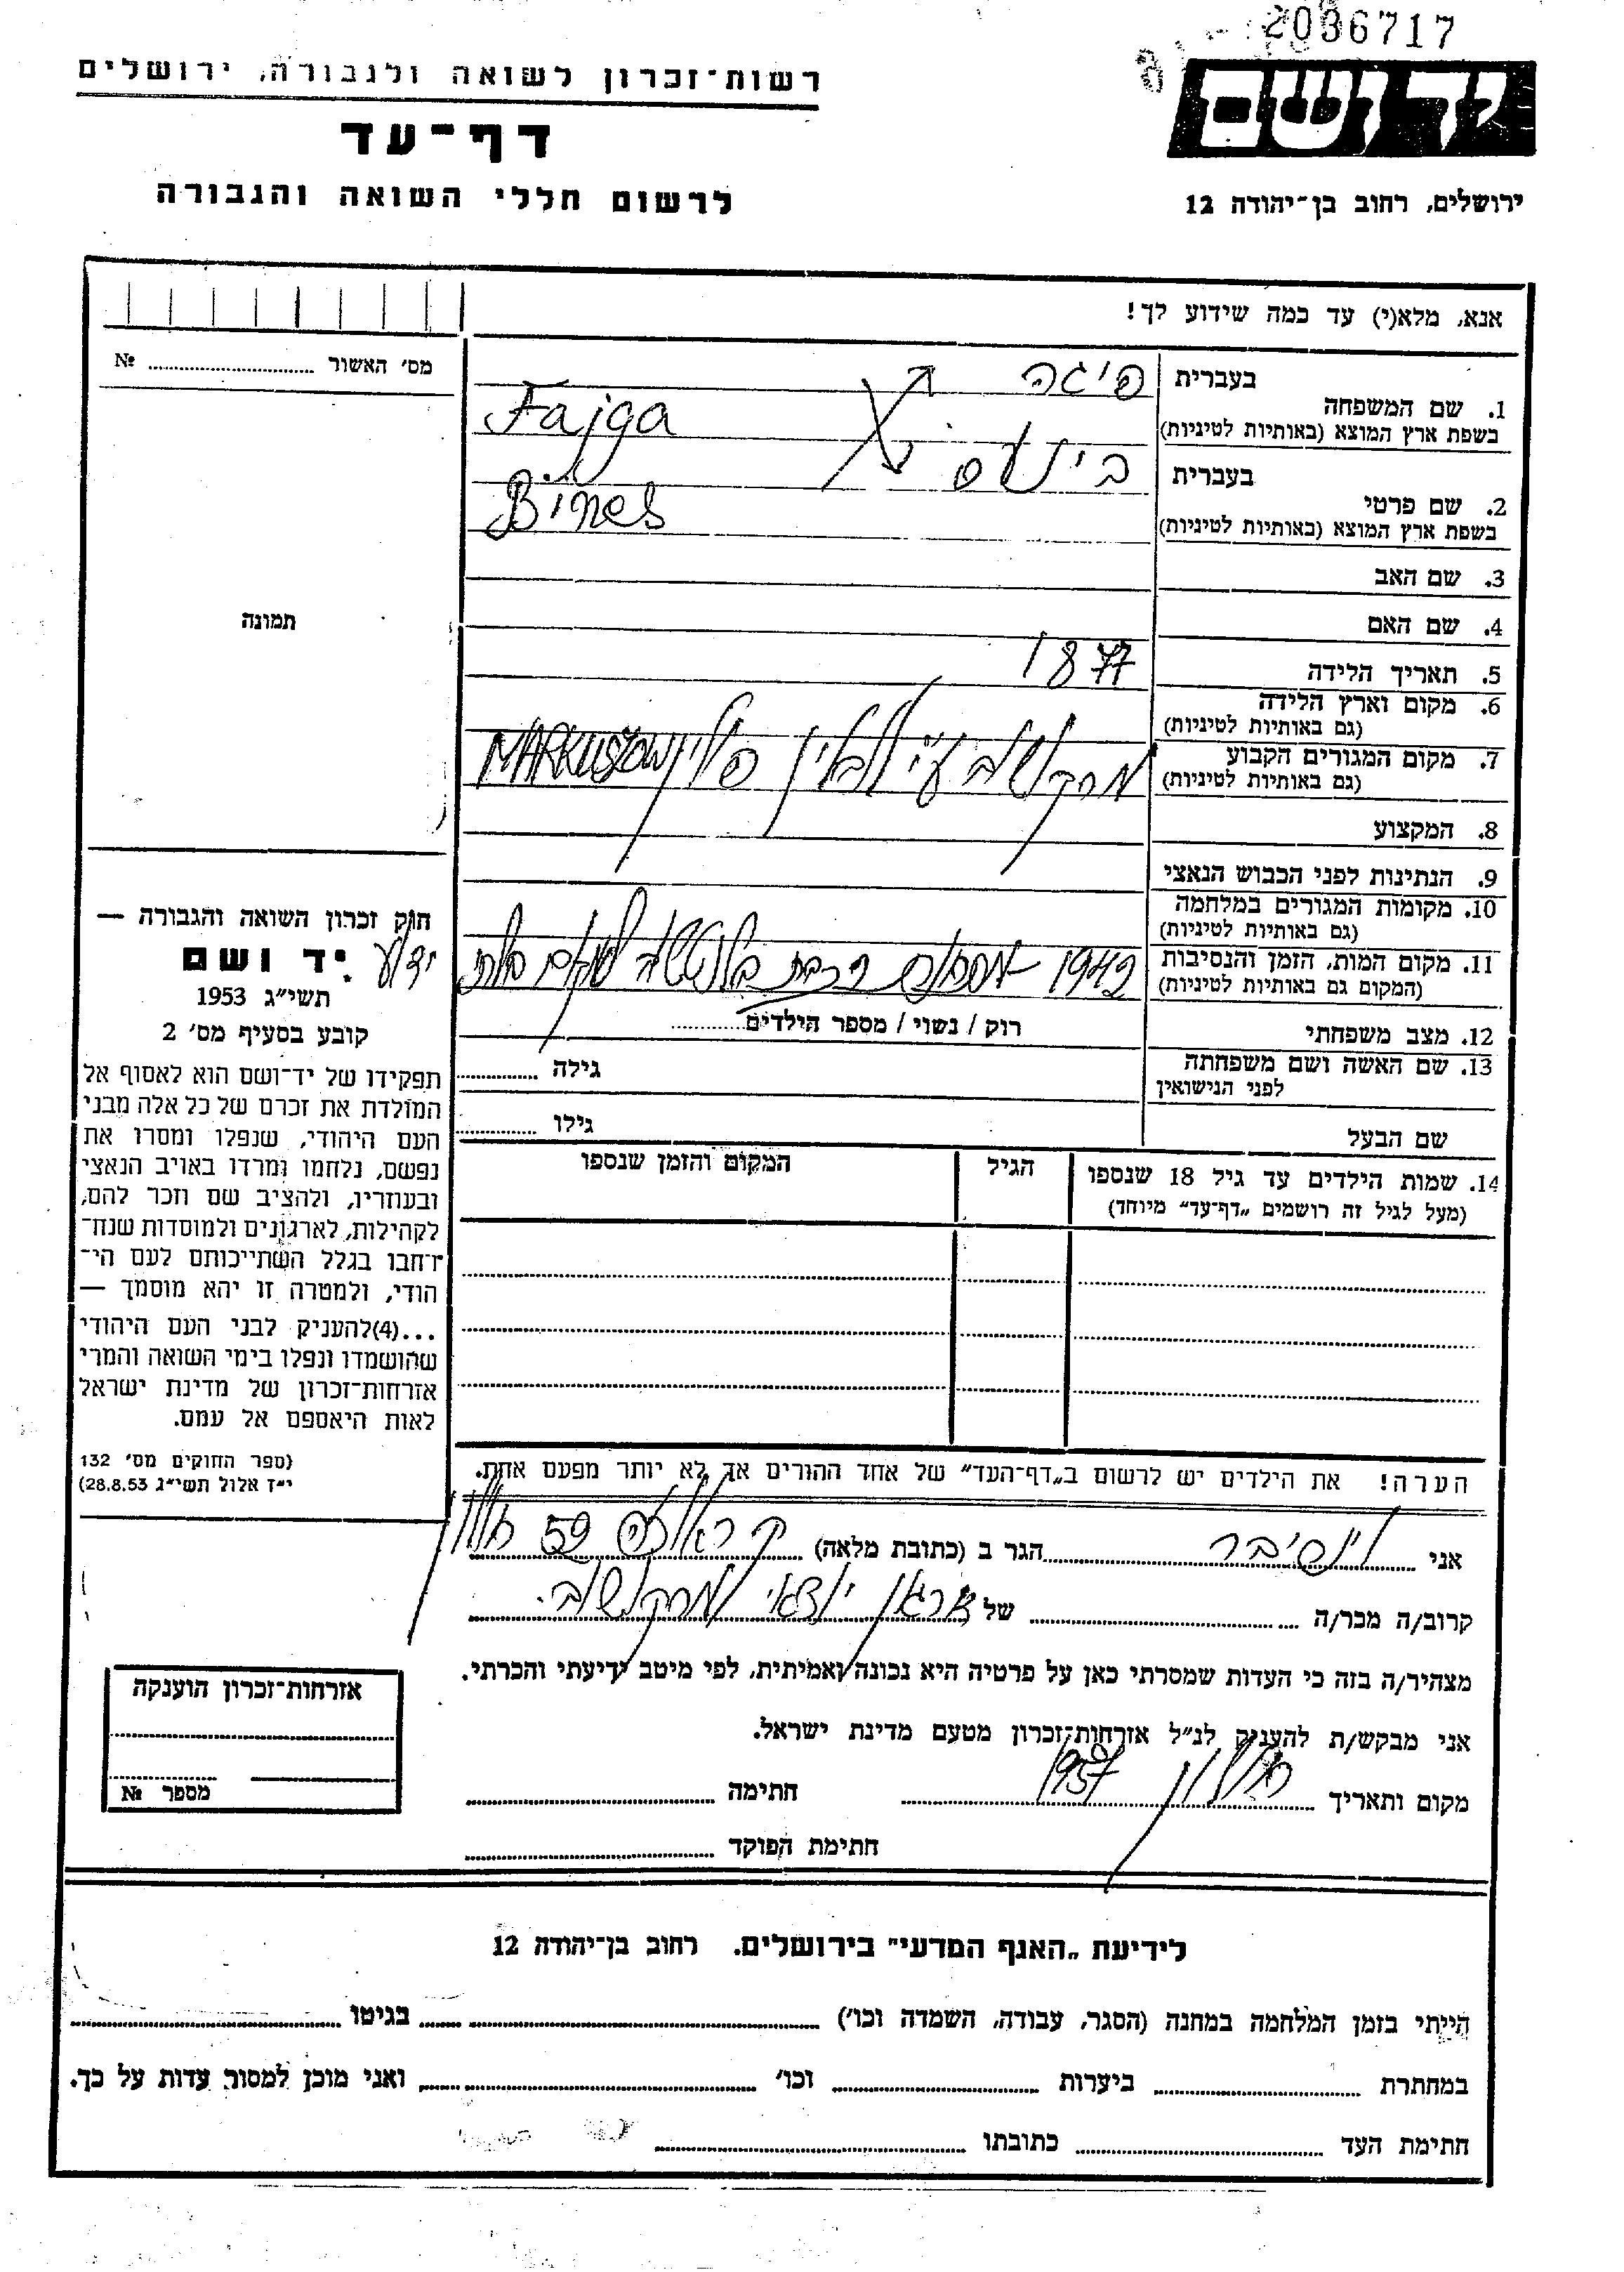 2036717
יד ושם
ירושלים, רחוב בן־יהודה 12
רשות־זכרון לשואה ולגבורה, ירושלים
דף־עד
לרשום חללי השואה והגבורה
אנא, מלא(י) עד כמה שידוע לך!
מס׳ האשור № ........
1. שם המשפחה בעברית פיגה
בשפת ארץ המוצא (באותיות לטיניות) Fajga
2. שם פרטי בעברית בינעס
בשפת ארץ המוצא (באותיות לטיניות) Bines
3. שם האב
4. שם האם
5. תאריך הלידה 1877
6. מקום וארץ הלידה
(גם באותיות לטיניות)
7. מקום המגורים הקבוע מרקושוב ע״י לובלין פולין MARKUSZOW
(גם באותיות לטיניות)
8. המקצוע
9. הנתינות לפני הכבוש הנאצי
10. מקומות המגורים במלחמה
(גם באותיות לטיניות)
11. מקום המות, הזמן והנסיבות 1942 מקום בלתי ידוע
(המקום גם באותיות לטיניות)
12. מצב משפחתי רוק / נשוי / מספר הילדים........
13. שם האשה ושם משפחתה לפני הנישואין גילה ........
שם הבעל גילו ........
14. שמות הילדים עד גיל 18 שנספו הגיל המקום והזמן שנספו
(מעל לגיל זה רושמים „דף־עד״ מיוחד)
הערה! את הילדים יש לרשום ב„דף־העד״ של אחד ההורים אך לא יותר מפעם אחת.
תמונה
חוק זכרון השואה והגבורה —
יד ושם
תשי״ג 1953
קובע בסעיף מס׳ 2
תפקידו של יד־ושם הוא לאסוף אל
המולדת את זכרם של כל אלה מבני
העם היהודי, שנפלו ומסרו את
נפשם, נלחמו ומרדו באויב הנאצי
ובעוזריו, ולהציב שם וזכר להם,
לקהילות, לארגונים ולמוסדות שנח־
רחבו בגלל השתייכותם לעם הי־
הודי, ולמטרה זו יהא מוסמך —
...(4)להעניק לבני העם היהודי
שהושמדו ונפלו בימי השואה והמרי
אזרחות־זכרון של מדינת ישראל
לאות היאספם אל עמם.
(ספר החוקים מס׳ 132
י״ז אלול תשי״ג 28.8.53)
אני ........ הגר ב (כתובת מלאה) 59
קרוב/ה מכר/ה ........ של ארגון יוצאי מרקושוב.
מצהיר/ה בזה כי העדות שמסרתי כאן על פרטיה היא נכונה ואמיתית, לפי מיטב ידיעתי והכרתי.
אני מבקש/ת להעניק לנ״ל אזרחות־זכרון מטעם מדינת ישראל.
מקום ותאריך חולון 1957 חתימה ........
חתימת הפוקד ........
אזרחות־זכרון הוענקה
מספר №
לידיעת „האגף המדעי״ בירושלים. רחוב בן־יהודה 12
הייתי בזמן המלחמה במחנה (הסגר, עבודה, השמדה וכו׳) ........ בגיטו ........
במחתרת ........ ביערות ........ וכו׳ ........ ואני מוכן למסור עדות על כך.
חתימת העד ........ כתובתו ........